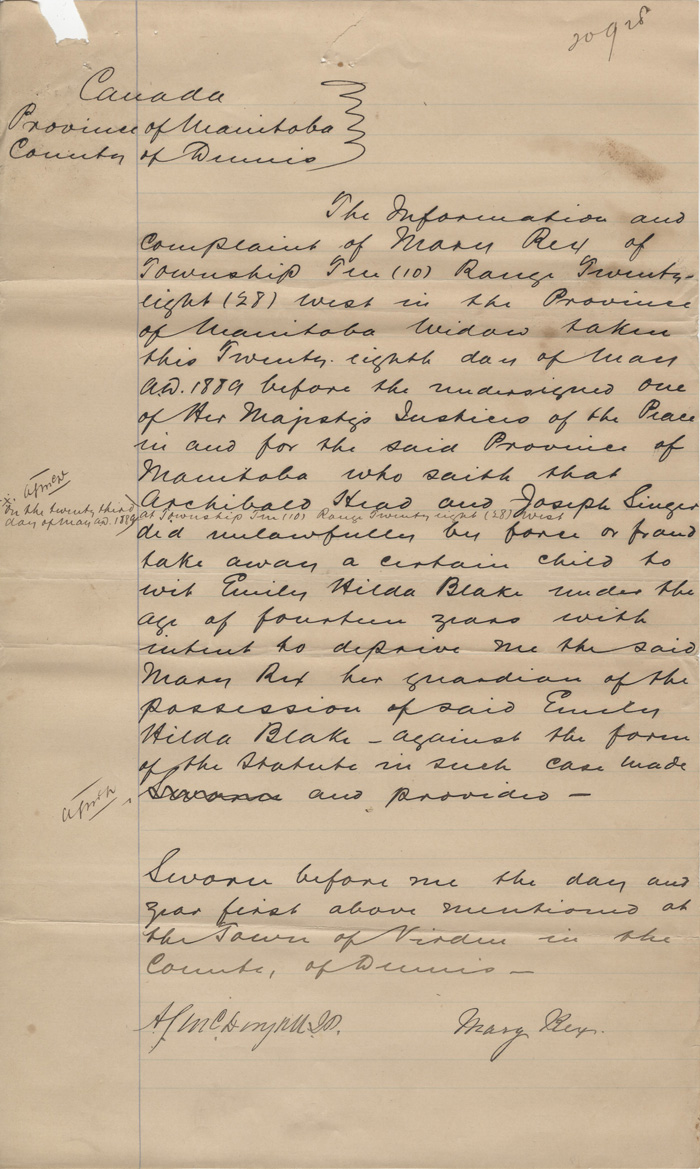 20928
Canada
Province of Manitoba
County of Dennis
The Information and
complaint of Mary Rex of
Township Ten (10) Range Twenty-
eight (28) west in the Province
of Manitoba Widow taken
this Twenty eighth day of May
A.D. 1889 before the undersigned one
of Her Majesty's Justices of the Peace
in and for the said Province of
Manitoba who saith that
Archibald Head and Joseph Singer
x. on the twenty third
day of May A.D. 1889
at Township Ten (10) Range Twenty eight (28) West
did unlawfully by force or fraud
take away a certain child to
wit Emily Hilda Blake under the
age of fourteen years with
intent to deprive me the said
Mary Rex her guardian of the
possession of said Emily
Hilda Blake - against the form
of the Statute in such case made
Sworn and provided -
Sworn before me the day and
year first above mentioned at
the Town of Virden in the
County of Dennis -
Mary Rex.